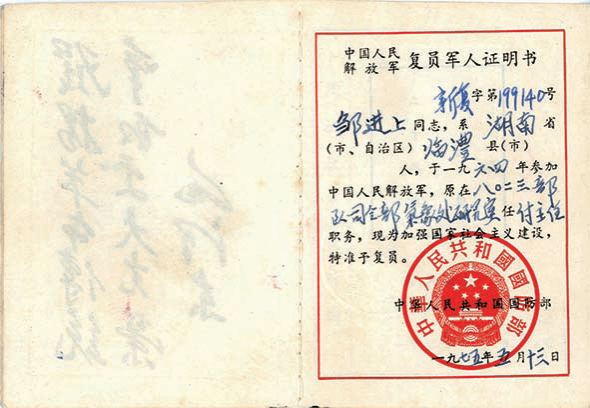 中国人民
解放军 复员军人证明书
新复字第199140号
邹进上同志，系湖南省
(市、自治区)临澧县(市)
人，于一九六四年参加
中国人民解放军，原在八〇二三部
队司令部气象处研究室任付主任
职务，现为加强国家社会主义建设，
特准予复员。
中华人民共和国国防部
中華人民共和國國防部
一九七五年五月十三日